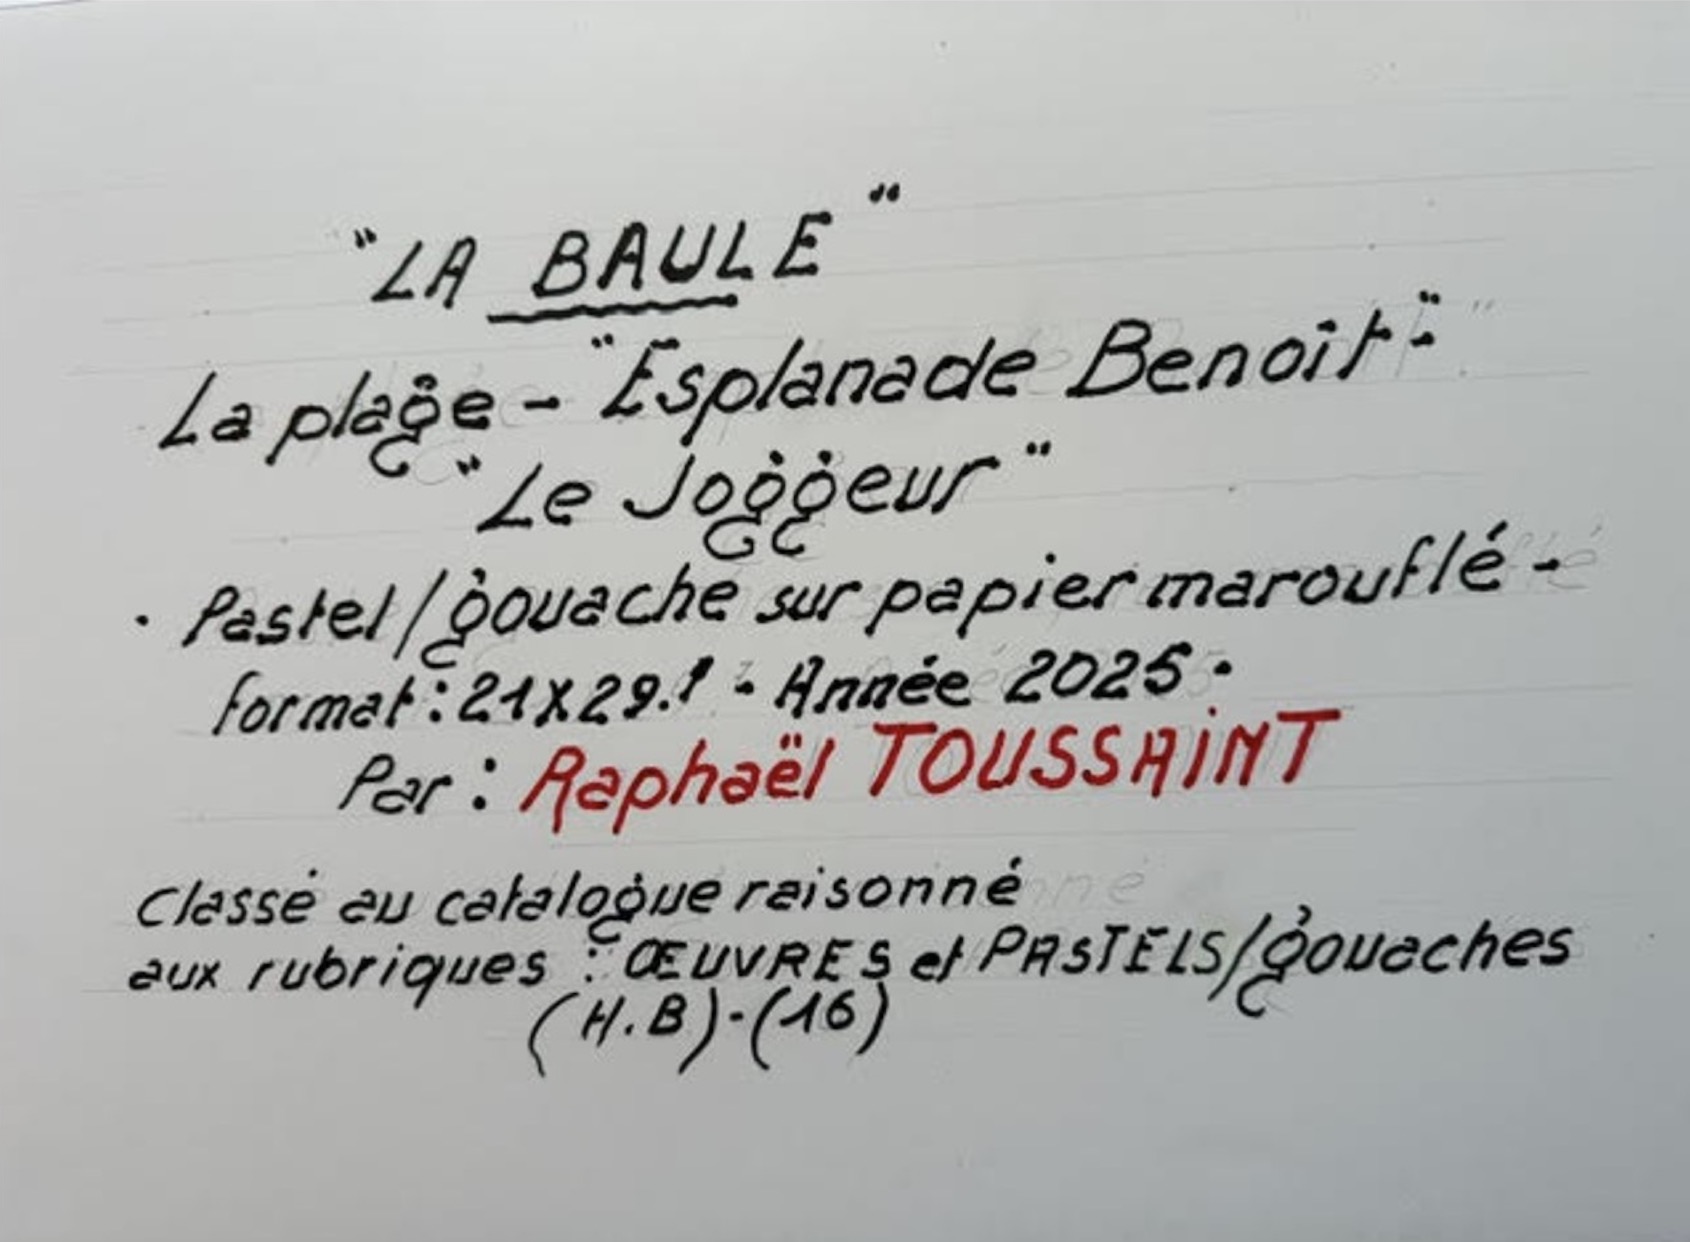 "LA BAULE"
La plage - "Esplanade Benoît-"
"Le Joggeur"
· Pastel/gouache sur papier marouflé -
format: 21x29.1 - Année 2025.
Par : Raphaël TOUSSAiNT
Classé au catalogue raisonné
aux rubriques : ŒUVRES et PASTELS/gouaches
(H.B).(16)